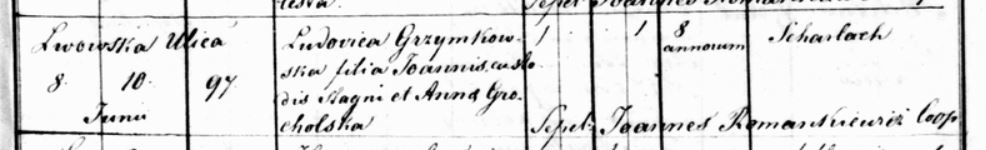 Lwowska Ulica
8. 10. 97
Junii
Ludovica Grzymkow-
ska filia Joannis custo
dis stagni et Anna Gro-
cholska
1 1 8
annorum
Scharlach
Sepel: Joannes Romankiewicz Coop